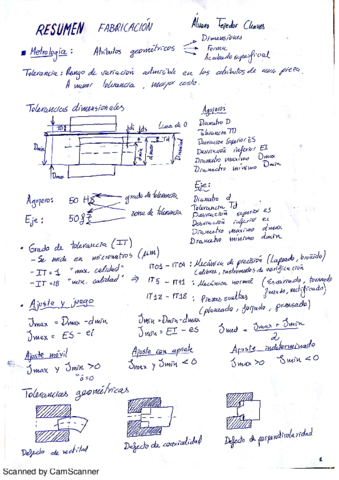 RESUMEN FABRICACIÓN
Álvaro Tejedor
Metrología: Atributos geométricos
Dimensiones
Forma
Acabado superficial
Tolerancia: Rango de variación admisible en los atributos de una pieza.
A menor tolerancia, mayor coste.
Tolerancias dimensionales
Línea de 0
Agujeros
Diametro D
Tolerancia TD
Desviación superior ES
Desviación inferior EI
Diametro maximo Dmax
Diametro minimo Dmin
Eje:
Diametro d
Tolerancia Td
Desviación superior es
Desviación inferior ei
Diametro maximo dmax
Diametro minimo dmin
Agujero: 50 H8
grado de tolerancia
Eje: 50g
zona de tolerancia
Grado de tolerancia (IT)
- Se mide en micrometros (μm)
- IT=1 "max. calidad"
- IT=18 "min. calidad" ⇒
IT01 - IT04: Mecánica de precisión (Lapeado, bruñido)
IT5 - IT11: Mecánica normal (Escariado, torneado
fresado, rectificado)
IT12 - IT18: Piezas sueltas
Ajuste y juego
Jmax = Dmax - dmin
Jmax = ES - ei
Jmin = Dmin - dmax
Jmin = EI - es
Jmed = Jmax + Jmin
2
Ajuste móvil
Jmax y Jmin > 0
ó=0
Ajuste con apriete
Jmax y Jmin < 0
Ajuste indeterminado
Jmax > 0 Jmin < 0
Tolerancias geométricas
Defecto de rectitud
Defecto de coaxialidad
Defecto de perpendicularidad
Scanned by CamScanner